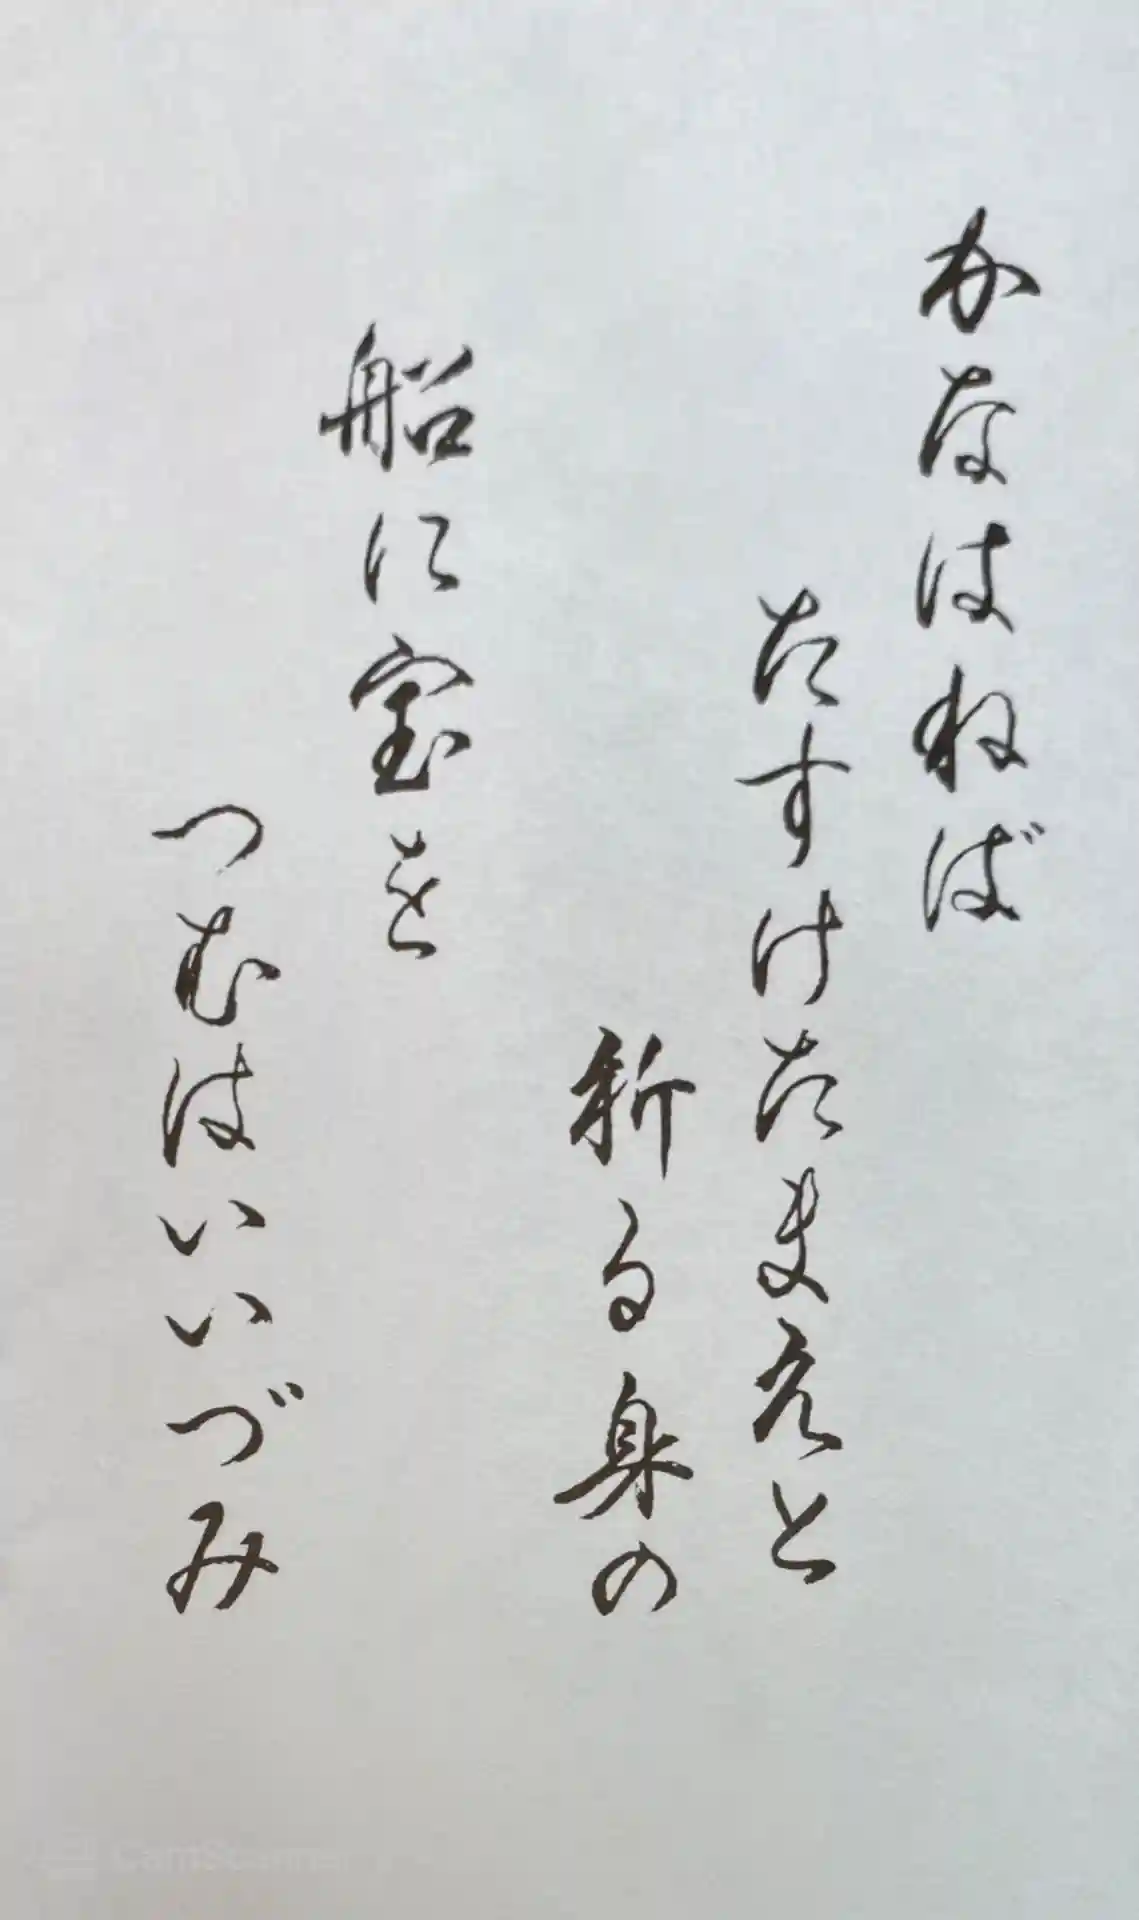 かなはねば
たすけたまえと
祈る身の
船に宝を
つむはいいづみ
CamScanner